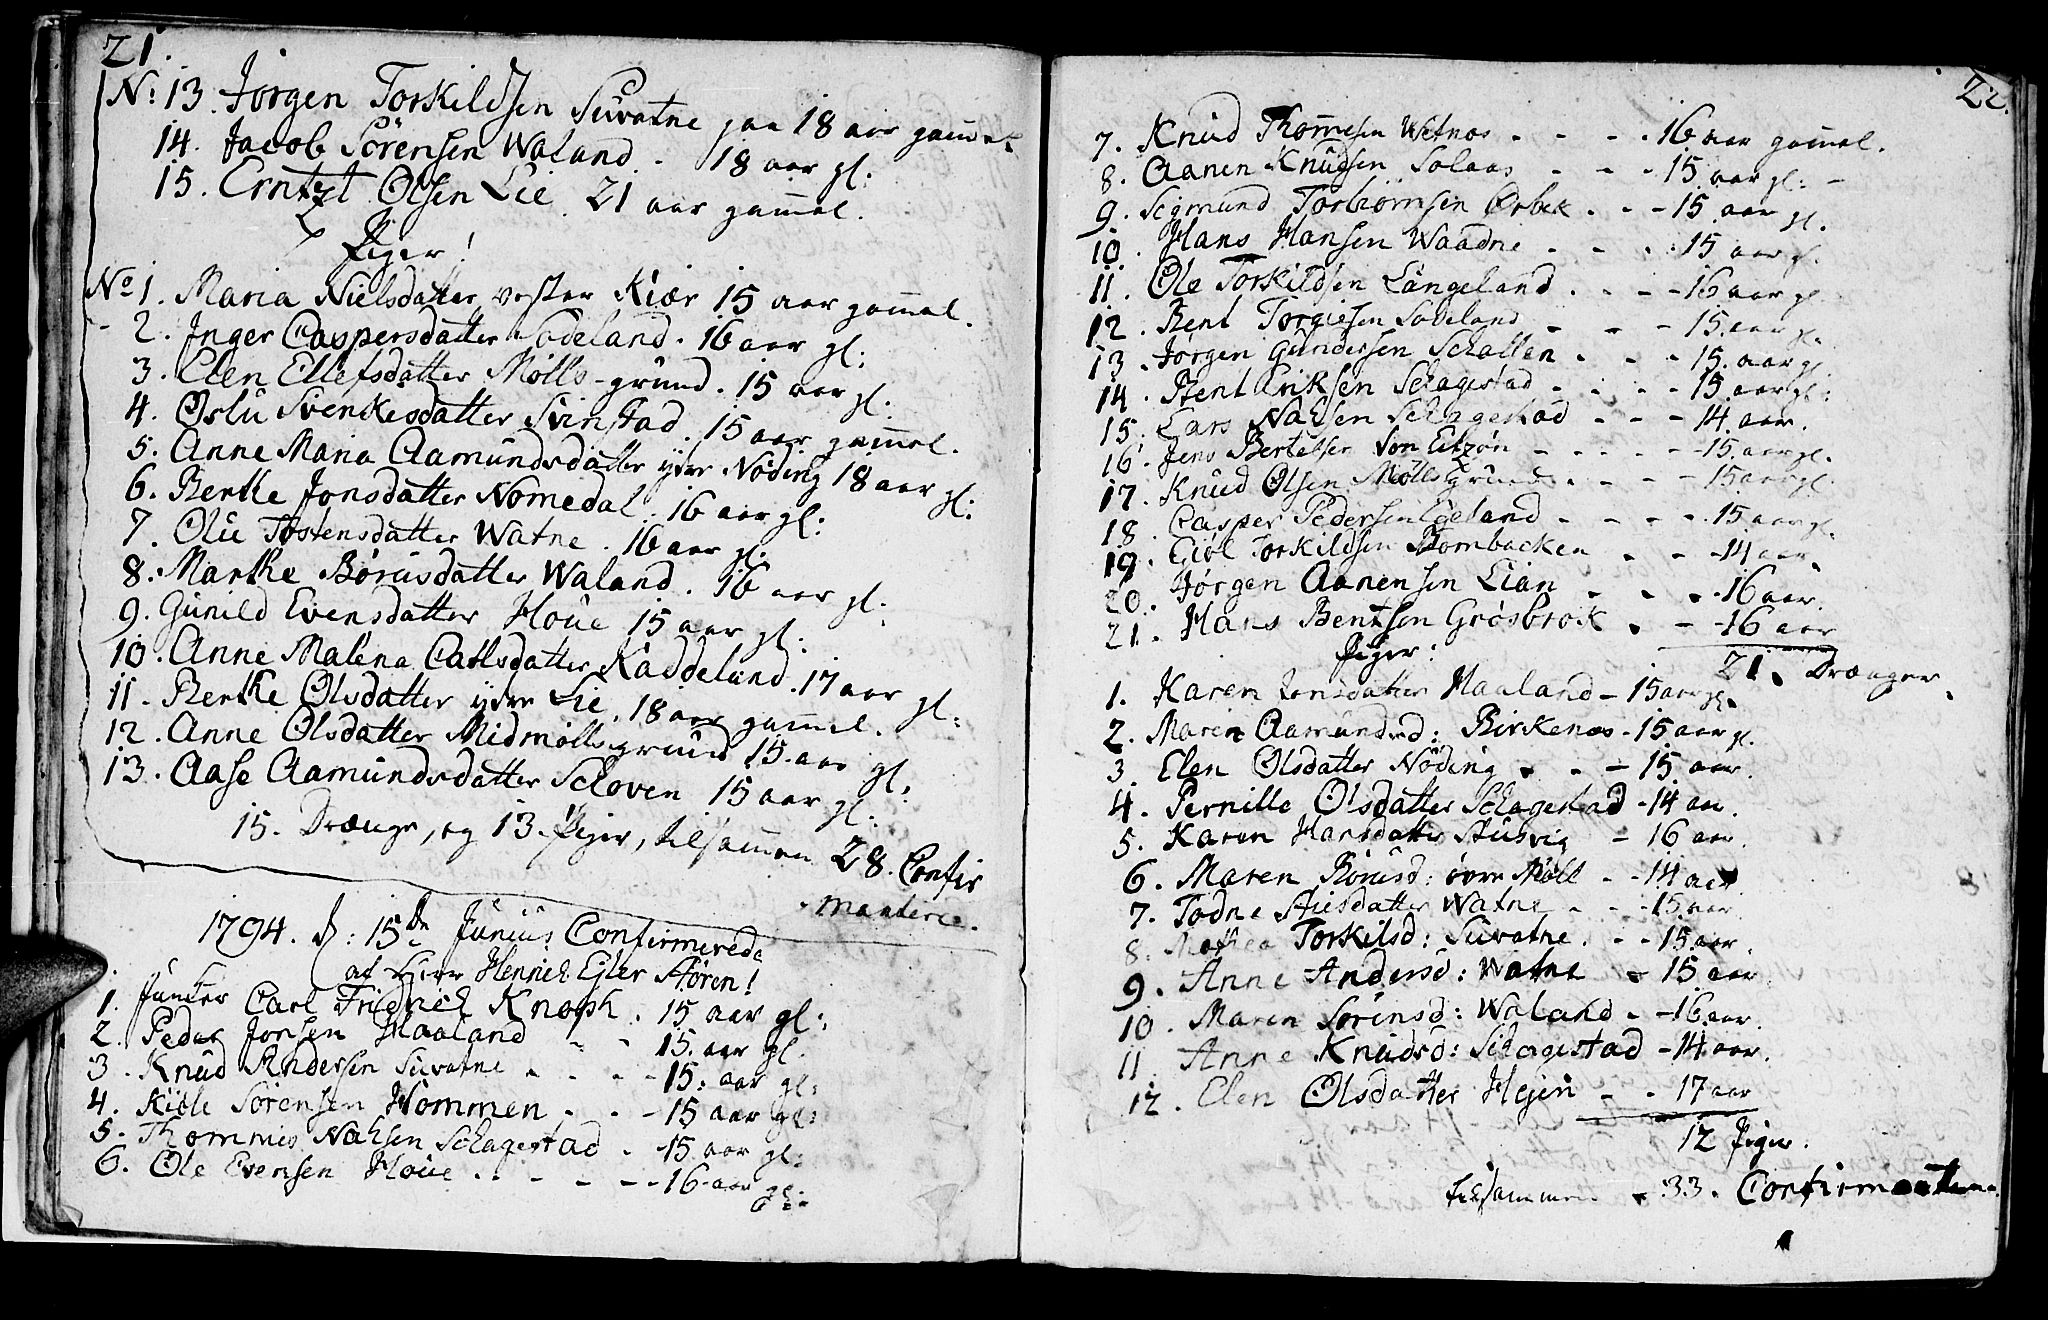 21.
No: 13. Jørgen Torkildsen Suvatne paa 18 aar gammel
14. Jacob Sörensen Waland. 18 aar gl:
15. Erntzt Olsen Lie. 21 aar gammel.
Piger!
No 1. Maria Nielsdatter vester Kiær 15 aar gammel.
- 2. Inger Caspersdatter Sodeland. 16 aar gl:
3. Elen Ellefsdatter Mölls-grund. 15 aar gl.
4. Oslu Svenkesdatter Svinstad. 15 aar gammel.
5. Anne Maria Aamundsdatter ydre Nöding 18 aar gl:
6. Berthe Jonsdatter Nomedal. 16 aar gl:
7. Olu Tostensdatter Watne. 16 aar gl.
8. Marthe Börusdatter Waland. 16 aar gl.
9. Gunild Evensdatter Houe 15 aar gl.
10. Anne Malena Carlsdatter Kaddeland. 17 aar gl:
11. Berthe Olsdatter ydre Lie. 18 aar gammel.
12. Anne Olsdatter Midmöllsgrund 15. aar gl:
13. Aase Aamundsdatter Schoven 15 aar gl.
15. Drænge, og 13. Piger, tilsammen 28. Confir
manterer.
1794. d: 15de Junius Confirmerede
af Herr Henrich Ejler Stören!
1. Junker Carl Fridrich Knoph. 15 aar gl:
2. Peder Jonsen Haaland - - 15. aar gl.
3. Knud Andersen Suvatne - - - - 15: aar gl:
4. Kiöle Sörensen Hommen - - - 15 aar gl:
5. Thommes Nahsen Schagestad - 15. aar gl:
6. Ole Evensen Houe - - - - - 16 aar gl:
22.
7. Knud Thommesen Wetnes - - - - 16 aar gammel.
8. Aanen Knudsen Solaas - - - 15 aar gl: -
9. Sigmund Torbiornsen Ørbek - - - 15 aar gl.
10. Hans Hansen Waadne - - - : 15 aar gl.
11. Ole Torkildsen Langeland - - - - 16 aar gl
12. Bent Torgiesen Sodeland - - - 15. aar gl.
13. Jörgen Gundersen Schallen - - - 15. aar gl
14. Bent Eriksen Schagestad - - - 15 aar gl:
15. Lars Nahsen Schagestad - - - 14 aar.
16. Jens Bertelsen Von Eitzön - - - - - 15. aar gl.
17. Knud Olsen Möllsgrund - - - 15 aar gl:
18. Casper Pedersen Egeland - - - - 15 aar gl.
19. Eiöl Torkildsen Bornbacken - - - 14 aar.
20. Jörgen Aanensen Lian - - - - 16 aar.
21. Hans Bentsen Grösbrok - - - 16 aar
21. Drænger.
Piger:
1. Karen Jonsdatter Haaland - 15 aar gl.
2. Maren Aamundsd: Birkenes - 15 aar gl.
3. Elen Olsdatter Nöding - - - 15 aar.
4. Pernille Olsdatter Schagestad - 14 aar.
5. Karen Hansdatter Stusvig - 16 aar.
6. Maren Börusd: övre Möll - - 14 aar
7. Todne Stiesdatter Watne - - - 15. aar
8. Torkilsd: Suvatne. - - 15. aar.
9. Anne Andersd: Watne - 15 aar
10. Maren Sörinsd: Waland - - 16. aar.
11. Anne Knudsd: Schagestad - 14. aar.
12. Elen Olsdatter Hejen - - 17 aar
12 Piger.
tilsammen - 33. Confirmanter.